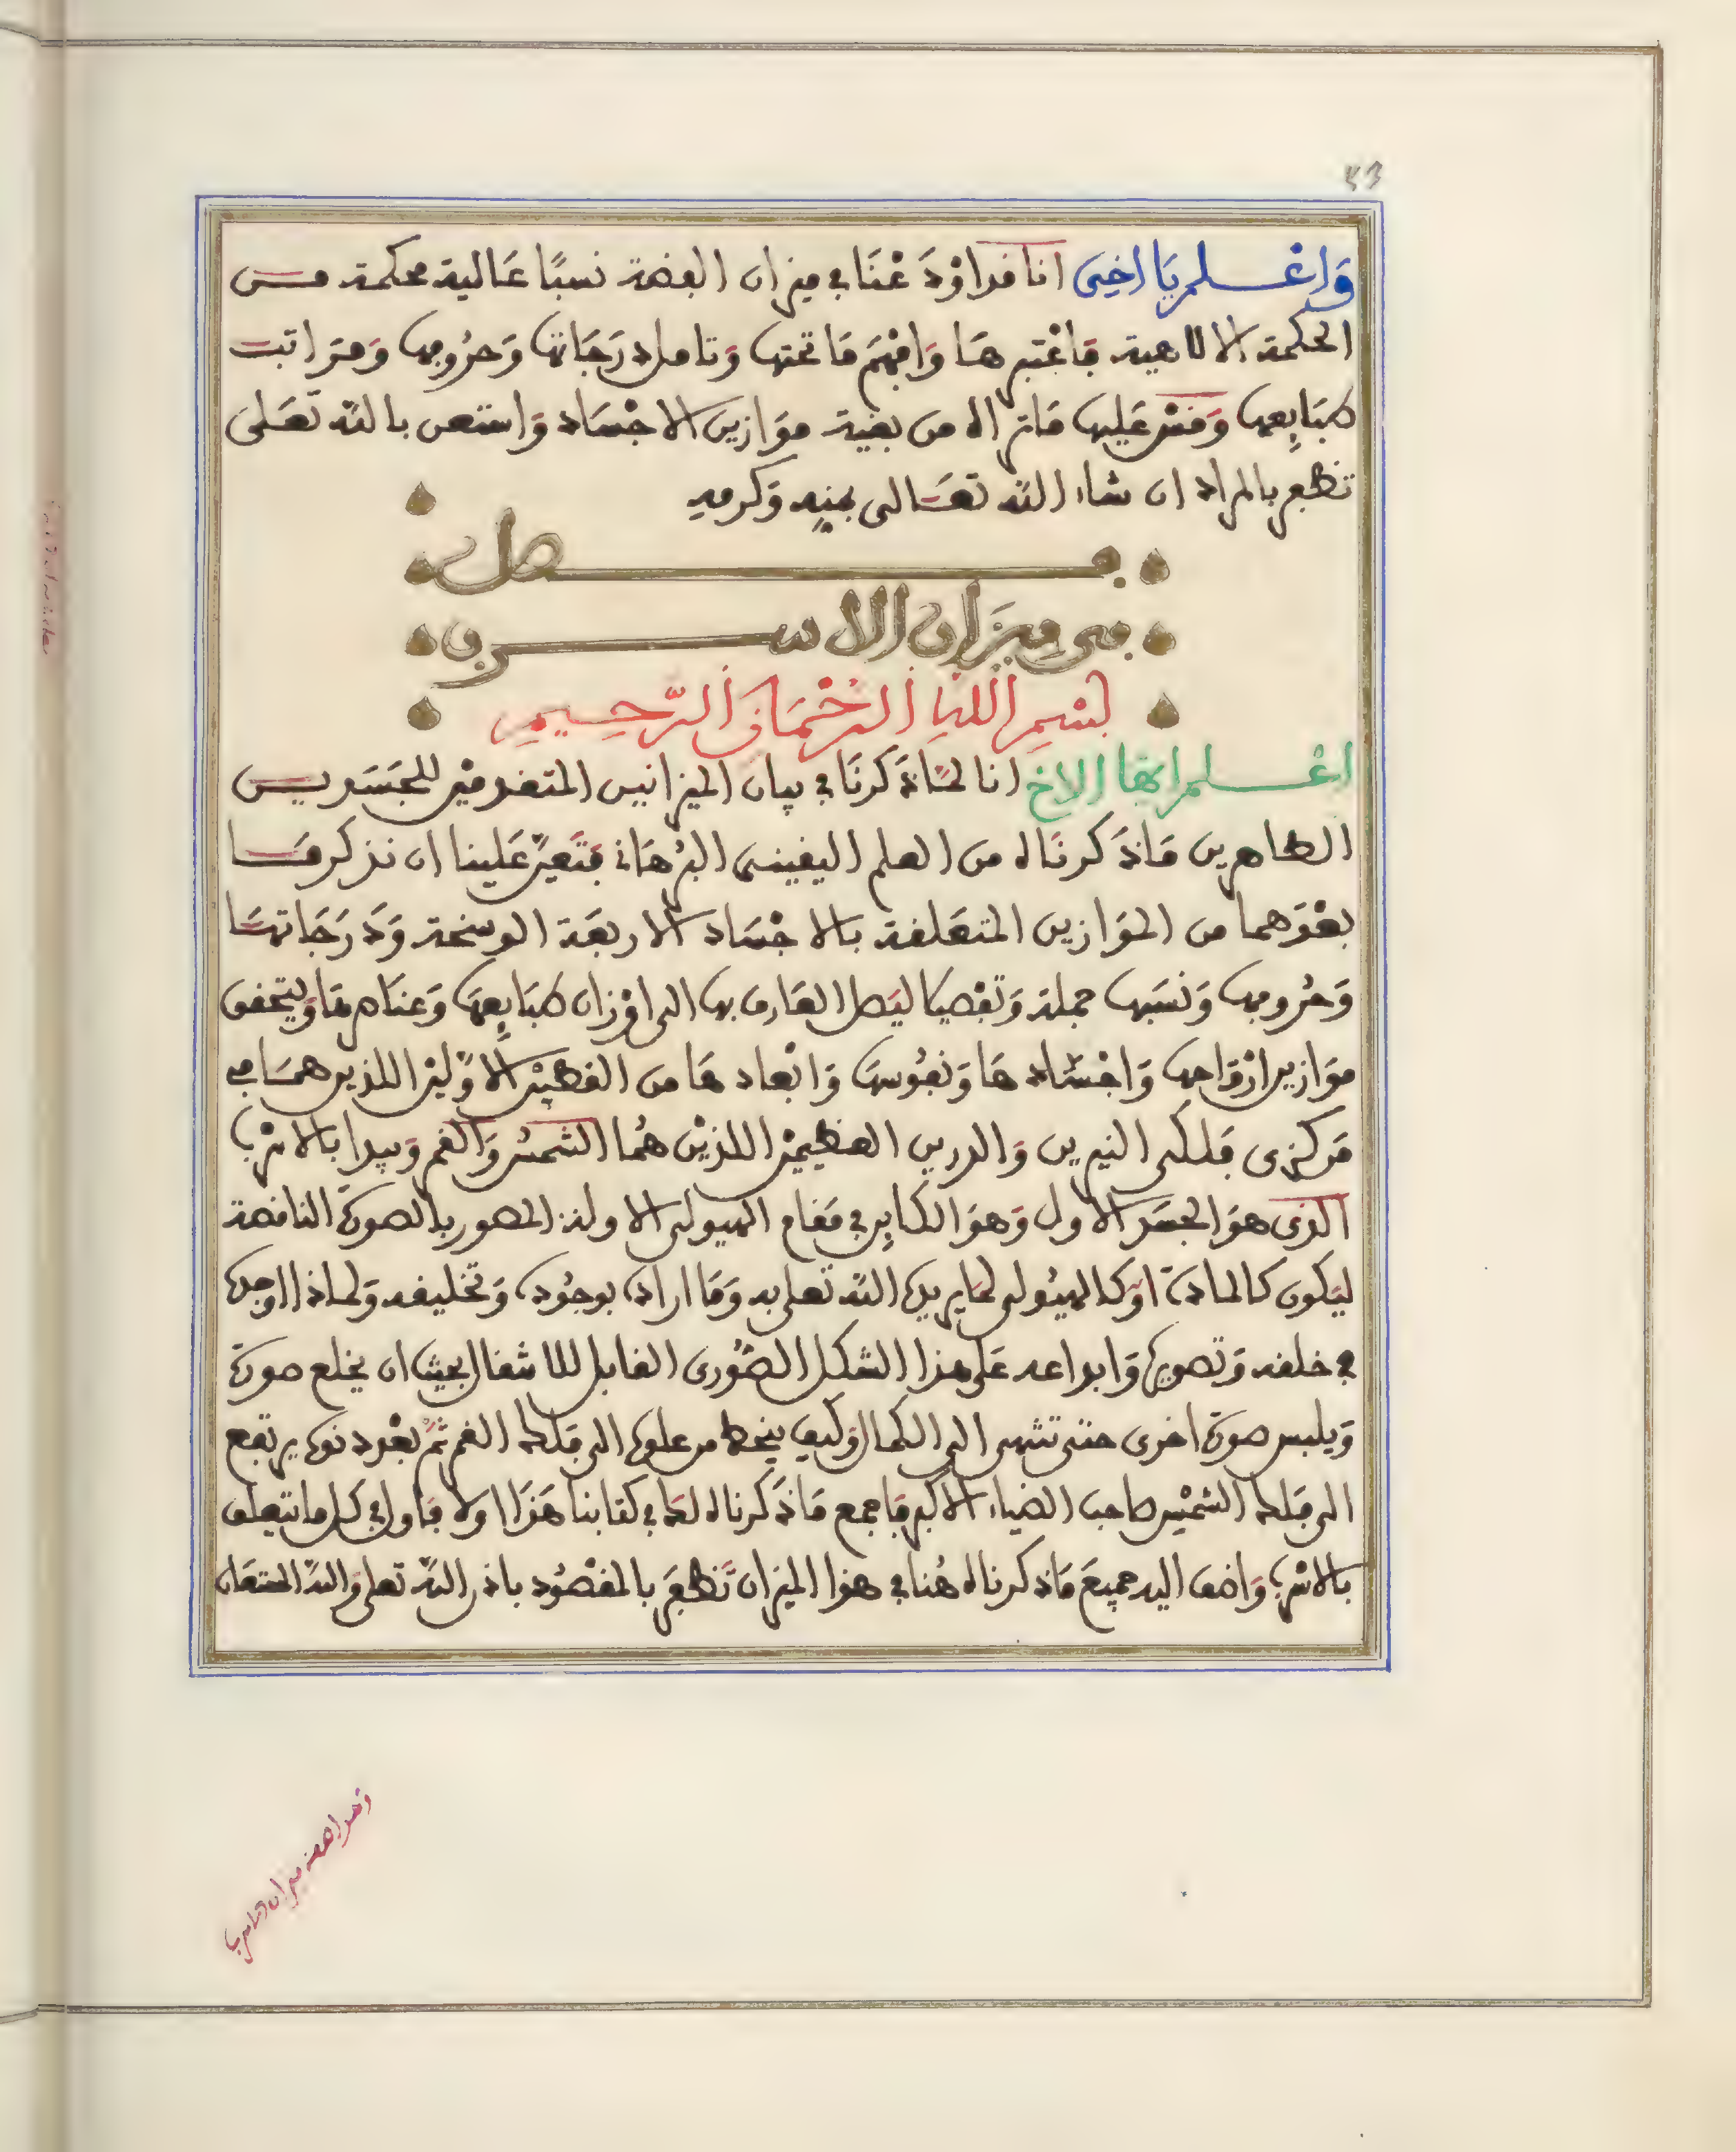 53
وَاعْلم يَا اخِى انا قد اوْدَعْنَا في ميزان الفضة نسبًا عَالية محكمة مـن
الحكمة الالاهية فاعْتبرهَا وَافهَم مَا تحتها وَتامل درَجَاتها وَحرُوفها وَمرَاتب
طبَايِعها وَقسْ عَليها مَا تراه من بقية موَازين الاجْسَاد وَاستعن بالله تعَلى
تظفر بالمراد ان شاء الله تعَالى بمنِه وَكرمِه
فـصل
في ميزَان الاسرب
بسْمِ اللهِ الرحْمَانِ الرَّحِيمِ
اعْلم ايها الاخ انا لمَّا ذَكرنَا في بيان الميزانين المتقدميْن للجسَدين
الطاهرين مَا ذَكرنَاه من العلم اليقينى البرْهَانى فتَعيَّن عَلينا ان نذكر مَـا
بعْدَهما من الموَازين المتعَلقة بالاجْسَاد الاربعَة الوسخة وَدرَجَاتهَا
وَحرُوفها وَنسَبها جملة وَتفصيلا ليَصل العَارف بها الى اوْزان طبَايِعهَا وَعنَاصرهَا وَيتحقق
موَازين ارْوَاحها وَاجْسَادهَا وَنفوُسهَا وَابْعادهَا من القطبيْن الاوَّليْن اللذين همَا في
مَركزى فلكى النيرين وَالدرين العظيميْن اللذيْن هُما الشمسُ وَالقمر وَيبدا بالاسْرب
الذى هوَ الجسَد الاول وَهوَ الكايِن في مَقام الهيولى الاولى المصور بالصورة الناقصة
ليَكون كالمادة اوْ كالهيُولى لمَا يريده الله تعلى به وَمَا اراده بوجُوده وَتخليقه وَلماذا اوجده
في خلقه وَتصويره وَابداعه عَلى هذا الشكل الصُّورى القابل للاشغال بحيث ان يخلع صورة
وَيلبس صورة اخرى حتى تنتهى الى الكمال وَكيف ينحط من علوه الى فلك القمر ثمَّ بعْد دنوه يرتفع
الى فلك الشمْس صاحب الضياء الاكبر فاجمع مَا ذَكرناه لك في كتابنا هَذَا اولا فاولا في كل ما يتعلق
بالاسْرب وَاضف اليه جميعَ مَا ذكرناه هُنا في هذا الميزان تَظفَر بالمقصُود باذن اللهَ تعلى وَاللهُ المستعَان
وهذا صفة ميزان الاسرب